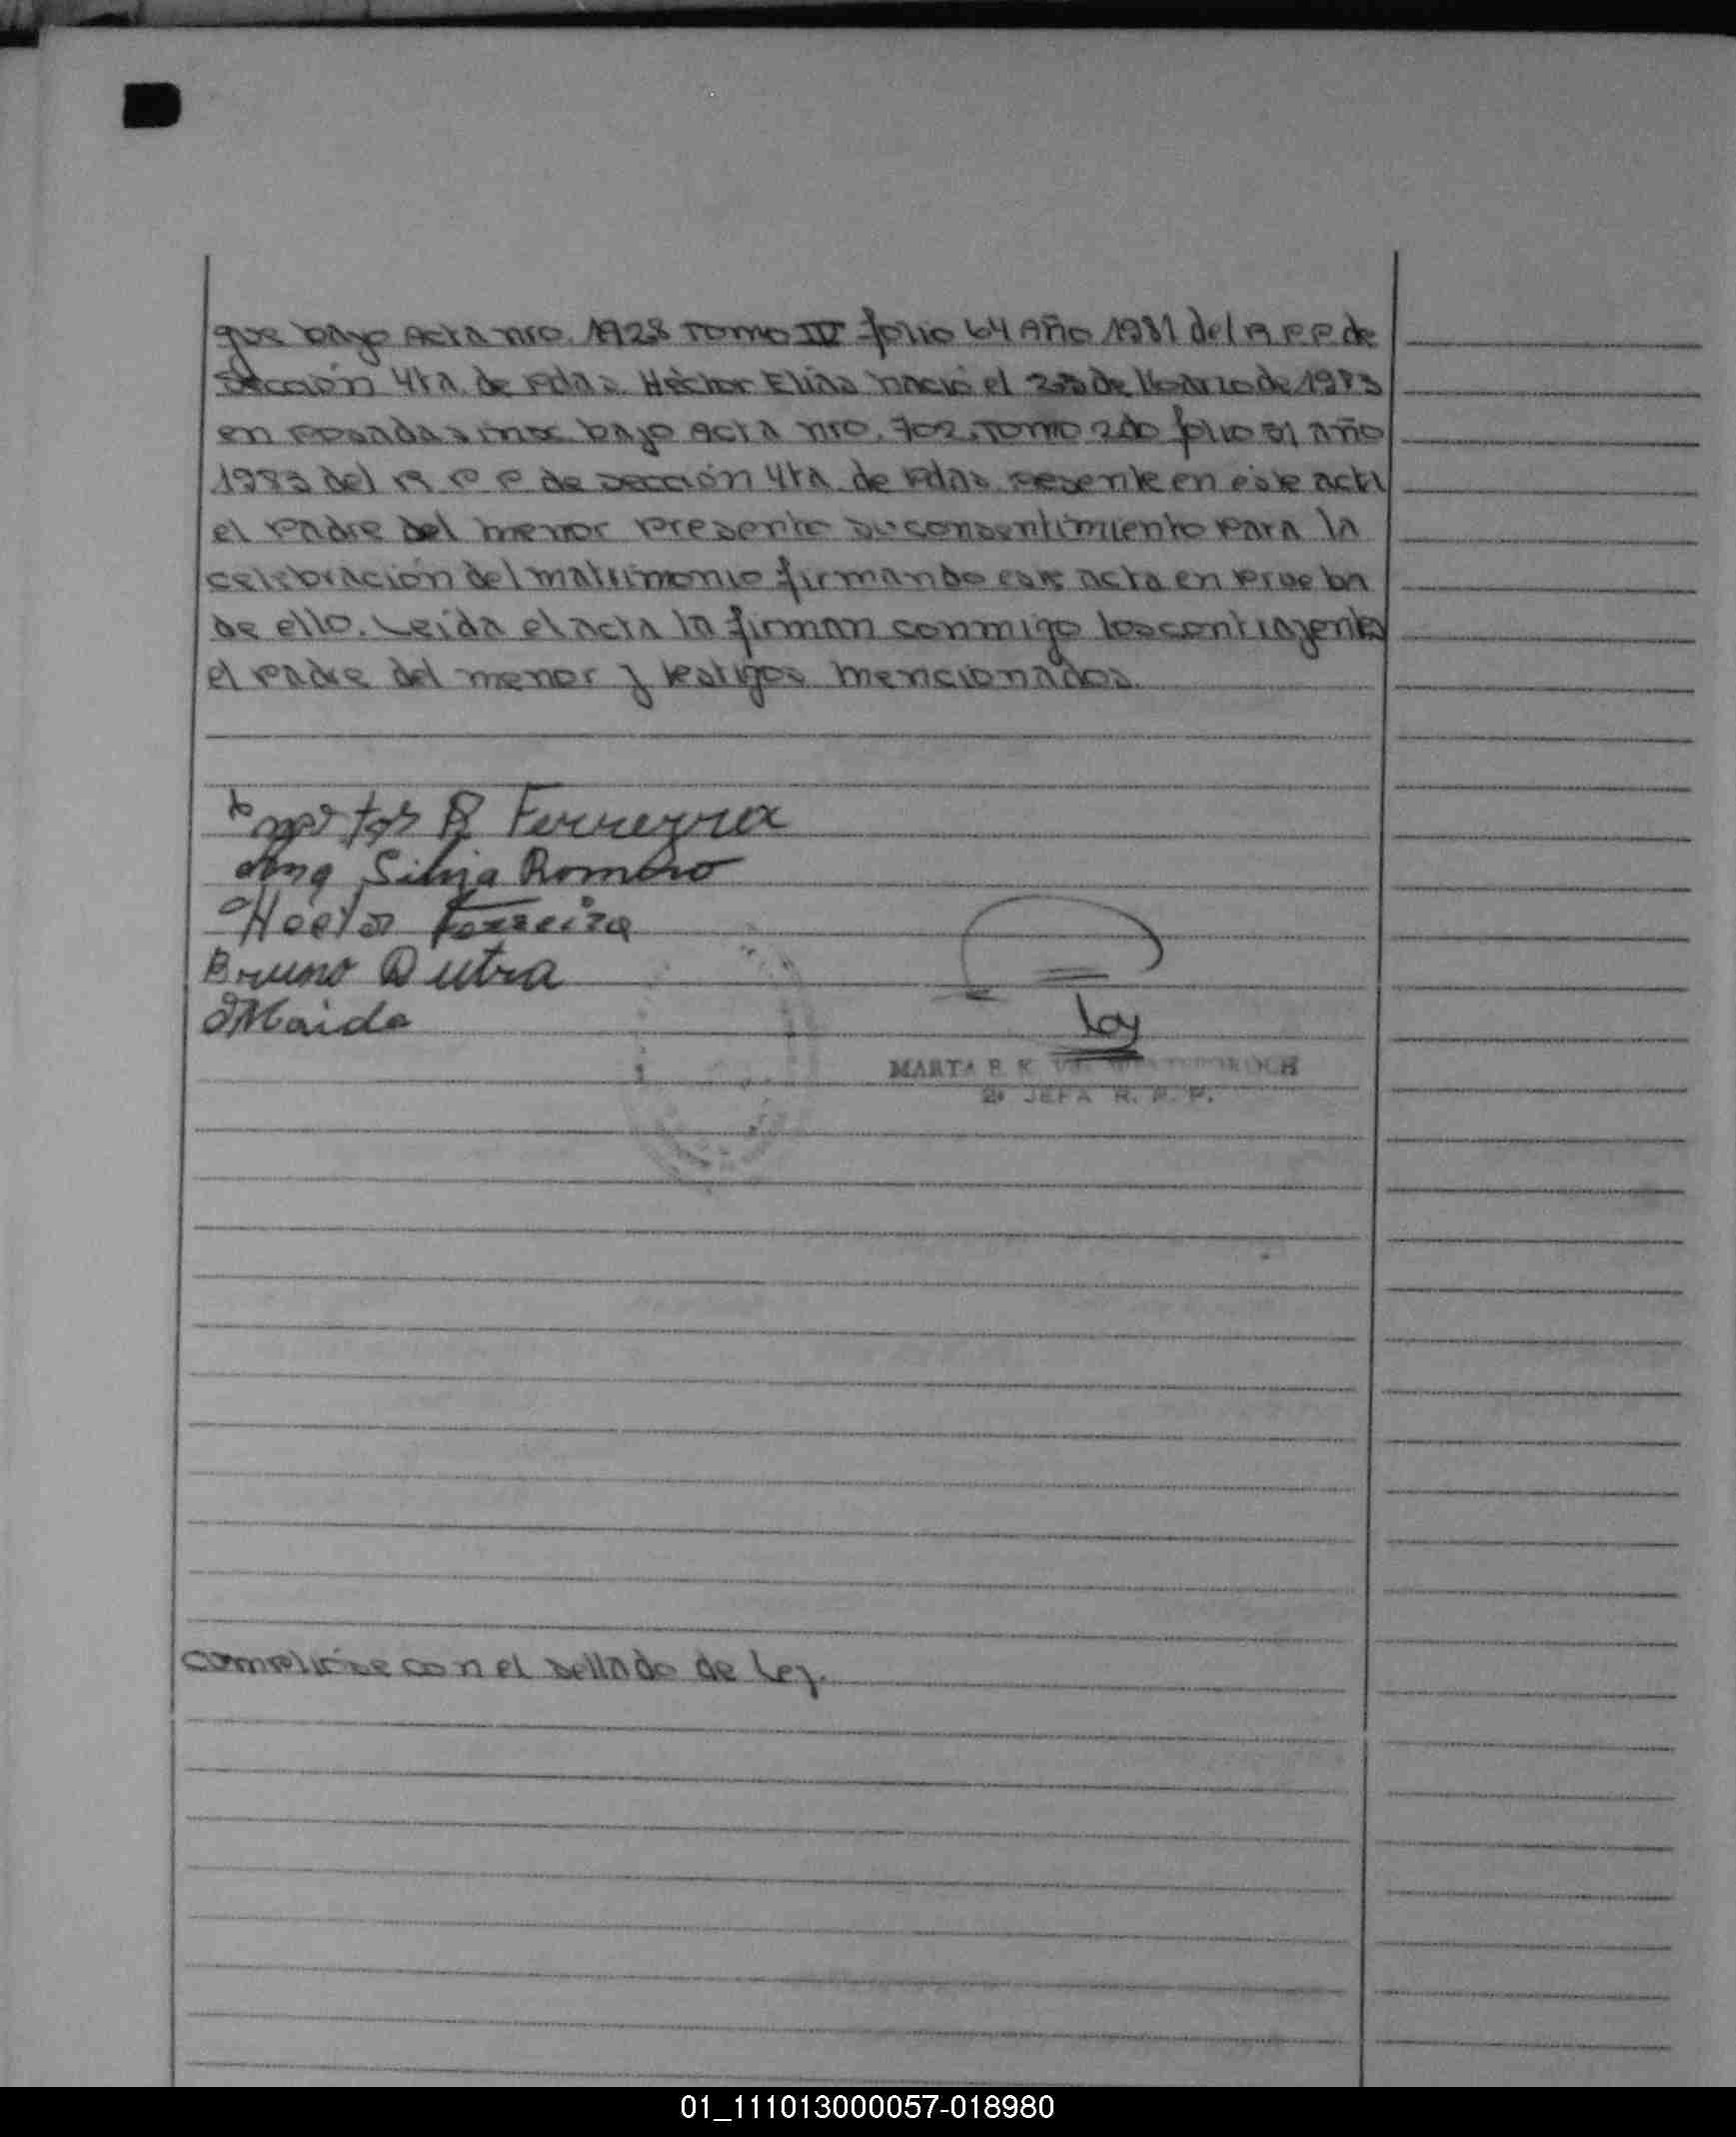 que bajo Acta nro. 1928 Tomo IV folio 64 Año 1981 del R.P.P de
sección 4ta de Pdas. Héctor Elias nació el 23 de Marzo de 1983
en Posadas mnes bajo acta nro. 702. Tomo 2do folio 51 año
1983 del R P P de sección 4ta de Pdas. Presente en este acto
el Padre del menor presento su consentimiento para la
celebración del matrimonio firmando este acta en prueba
de ello. Leida el acta la firman conmigo los contrayentes
el Padre del menor y testigos mencionados.
R Ferreyra
Silvia Romero
Hector Ferreira
Bruno Dutra
Maida
MARTA
2ª JEFA R. P. P.
complíose con el sellado de Ley.
01_111013000057-018980